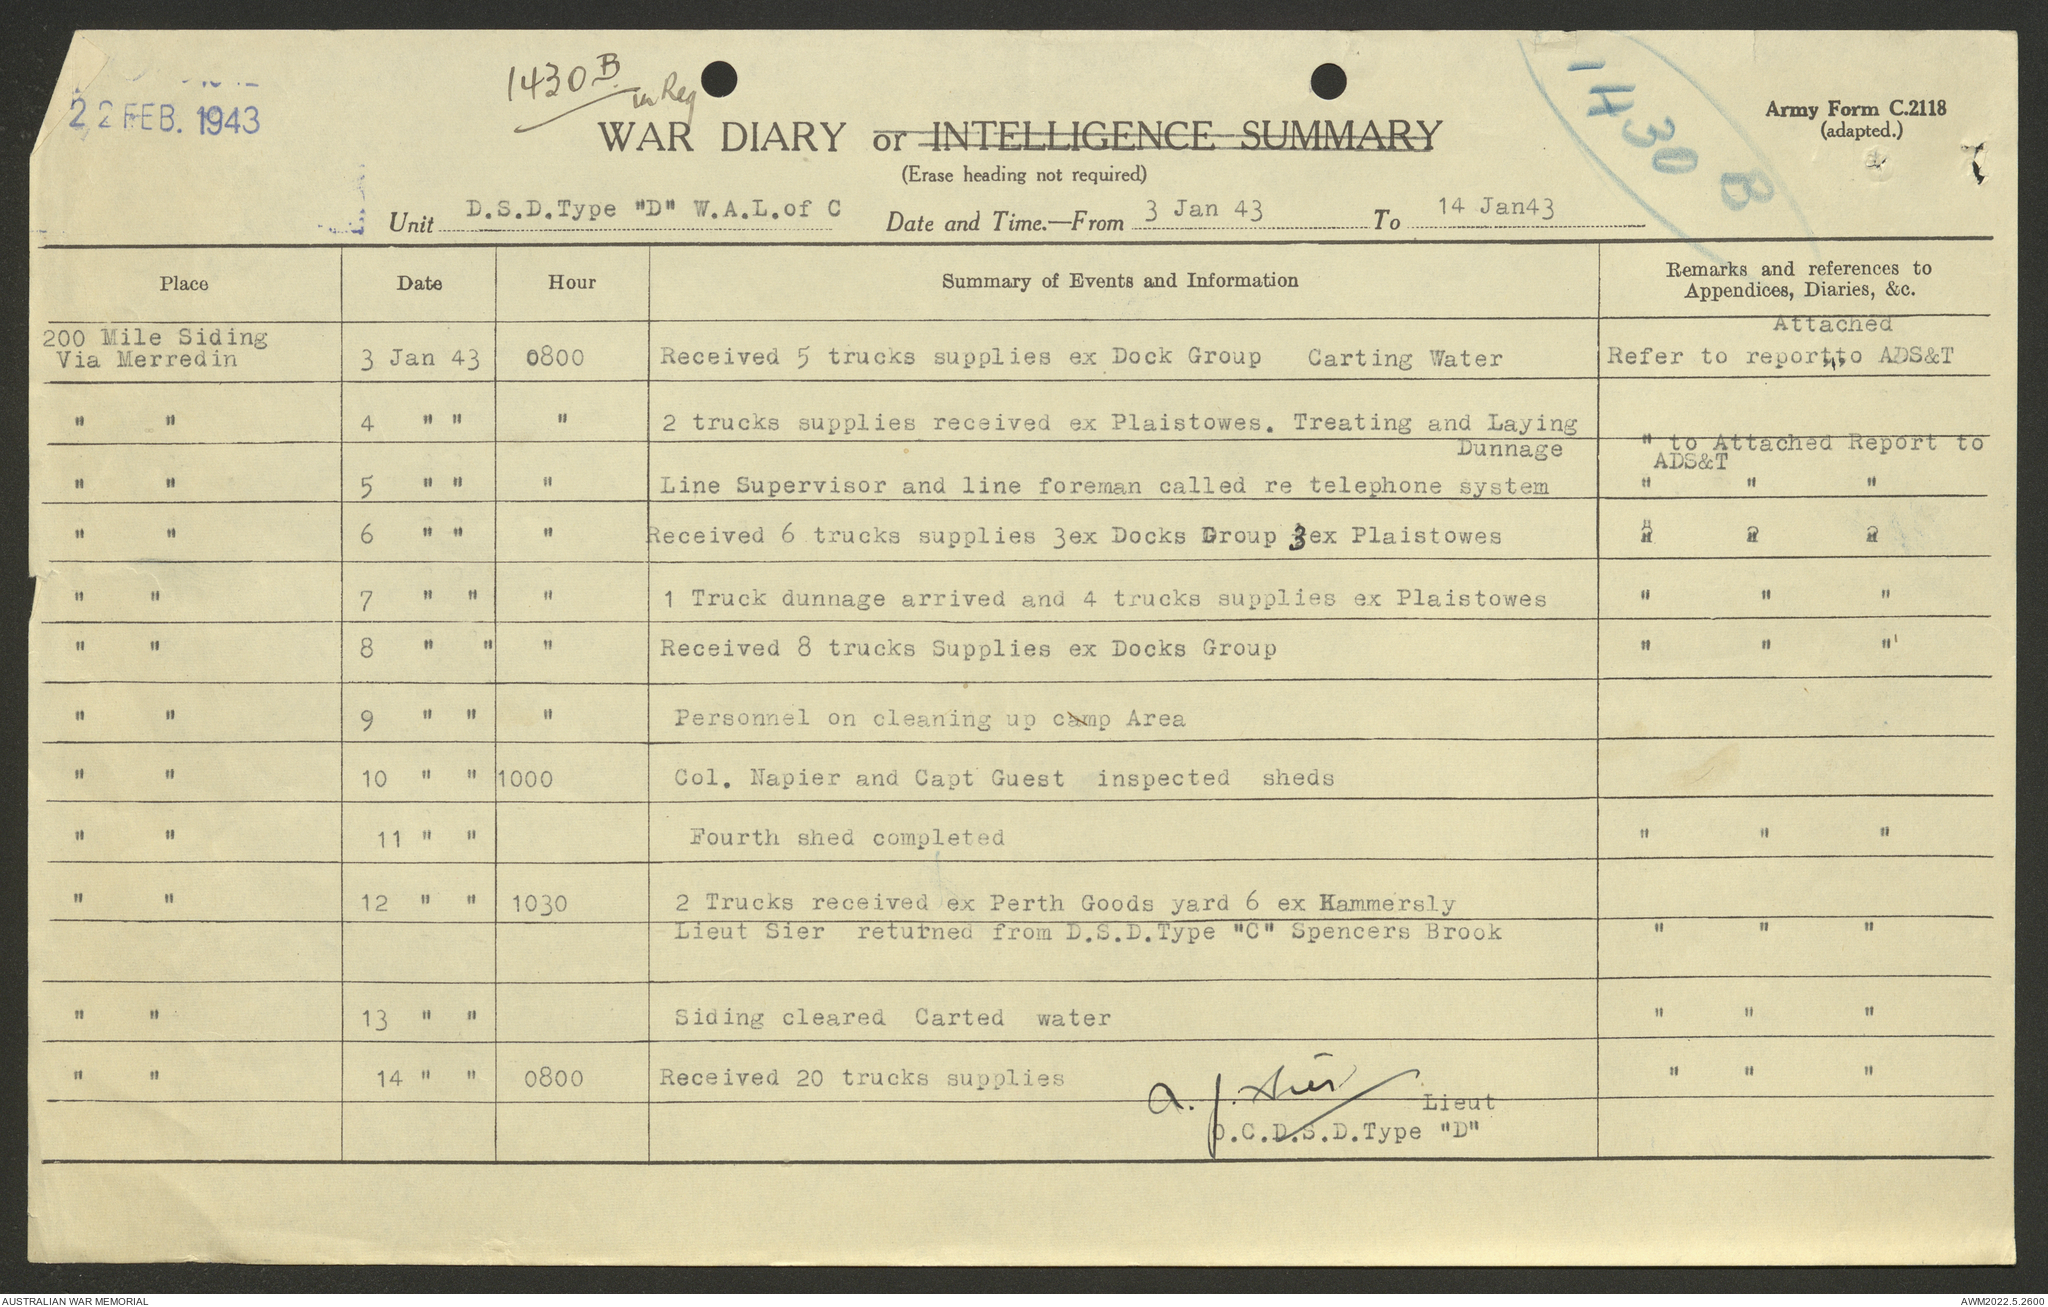 22 FEB. 1943
1430 B
in Reg
1430 B
Army Form C.2118
(adapted.)
WAR DIARY or INTELLIGENCE SUMMARY
(Erase heading not required)
Unit D.S.D.Type "D" W.A.L.of C Date and Time.—From 3 Jan 43 To 14 Jan43
Place Date Hour Summary of Events and Information Remarks and references to Appendices, Diaries, &c.
200 Mile Siding
Via Merredin 3 Jan 43 0800 Received 5 trucks supplies ex Dock Group Carting Water Refer to report,,to ADS&T
Attached
" " 4 " " " 2 trucks supplies received ex Plaistowes. Treating and Laying
Dunnage " to Attached Report to
ADS&T
" " 5 " " " Line Supervisor and line foreman called re telephone system " " "
" " 6 " " " Received 6 trucks supplies 3ex Docks Group 3ex Plaistowes " " "
" " 7 " " " 1 Truck dunnage arrived and 4 trucks supplies ex Plaistowes " " "
" " 8 " " " Received 8 trucks Supplies ex Docks Group " " "
" " 9 " " " Personnel on cleaning up camp Area
" " 10 " " 1000 Col. Napier and Capt Guest inspected sheds
" " 11 " " Fourth shed completed " " "
" " 12 " " 1030 2 Trucks received ex Perth Goods yard 6 ex Hammersly
Lieut Sier returned from D.S.D.Type "C" Spencers Brook " " "
" " 13 " " Siding cleared Carted water " " "
" " 14 " " 0800 Received 20 trucks supplies " " "
A. J. Sier Lieut
O.C.D.S.D.Type "D"
AUSTRALIAN WAR MEMORIAL AWM2022.5.2600